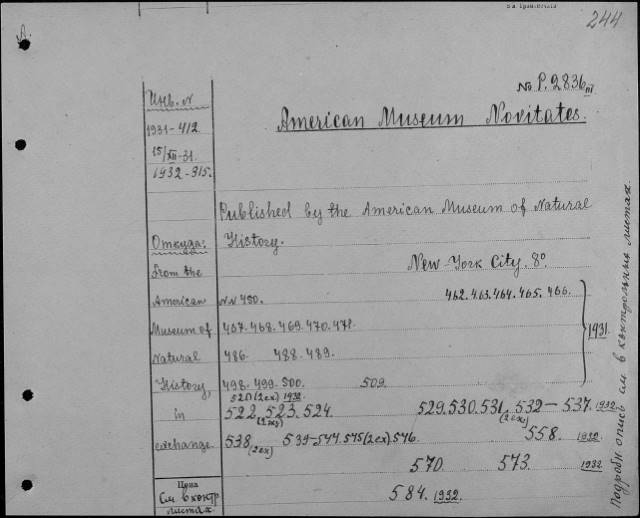 244
No P.2836 III
American Museum Novitates.
Инв. N
1931-412
15/XII-31.
1932-315.
Published by the American Museum of Natural
History.
New-York City. 8°
Откуда:
From the
American
Museum of
Natural
History,
in
exchange
NN 450. 462. 463. 464. 465. 466.
467. 468. 469. 470. 471.
486. 488. 489.
498. 499. 500. 509.
1931
520 (2ex) 1932
522. 523. 524. 529. 530. 531. 532 — 537. 1932
(2ex) (2ex)
538. 539-544. 545 (2ex). 546. 558. 1932
(2ex)
570. 573. 1932
584. 1932.
Цена
См. в контр
листах
Подробн опись см в контрольных листах.